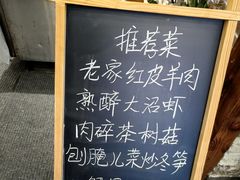 推荐菜
老家红皮羊肉
熟醉大沼虾
肉碎茶树菇
刨腌儿菜炒冬笋